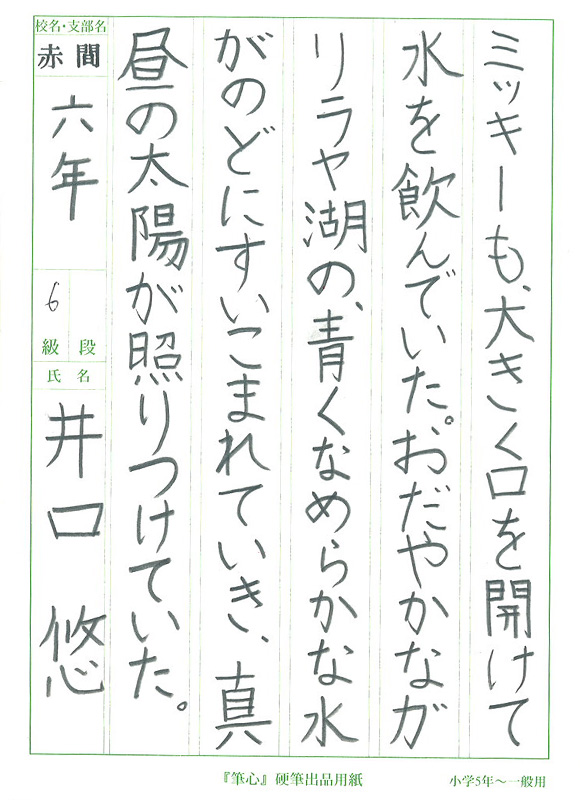 ミッキーも、大きく口を開けて
水を飲んでいた。おだやかなガ
リラヤ湖の、青くなめらかな水
がのどにすいこまれていき、真
昼の太陽が照りつけていた。
校名・支部名
赤間
六年
6
級 段
氏 名
井口 悠
『筆心』硬筆出品用紙
小学5年〜一般用